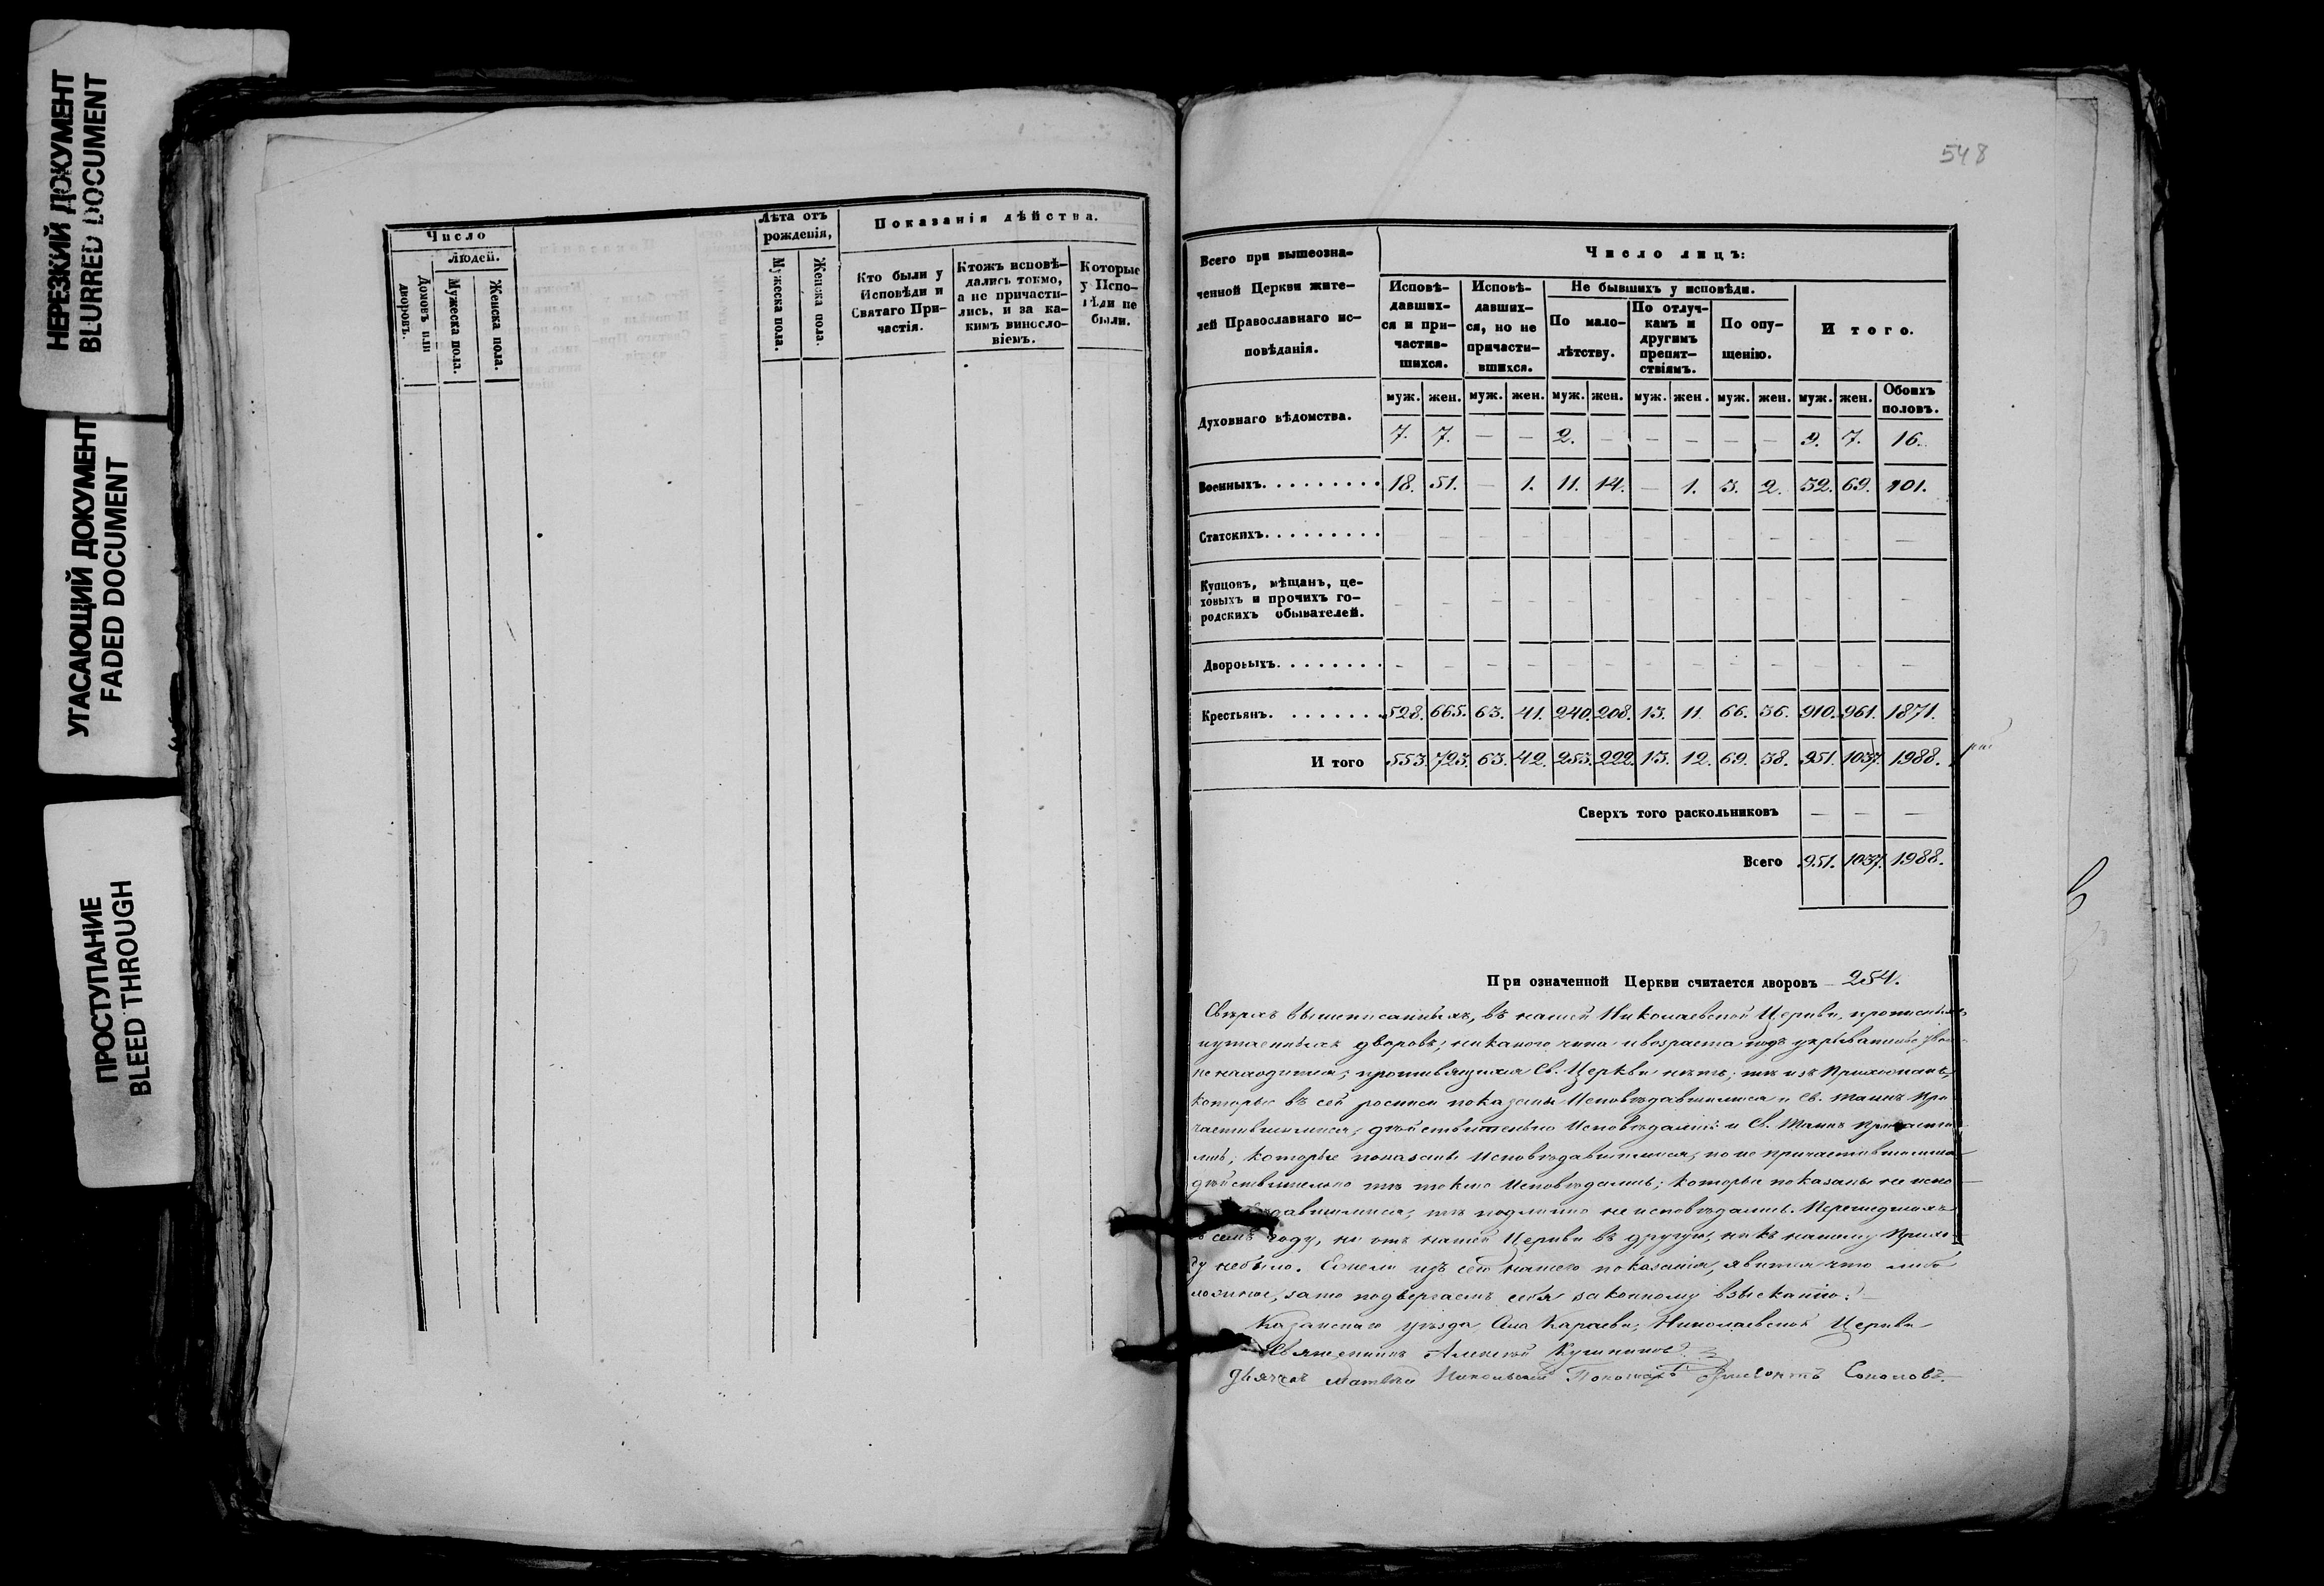 НЕРЕЗКИЙ ДОКУМЕНТ
BLURRED DOCUMENT
УГАСАЮЩИЙ ДОКУМЕНТ
FADED DOCUMENT
ПРОСТУПАНИЕ
BLEED THROUGH
Число
людей.
Домовъ или дворовъ.
Мужеска пола.
Женска пола.
Лѣта отъ
рожденія,
Мужеска пола.
Женска пола.
Показанія дѣйства.
Кто были у
Исповѣди и
Святаго При-
частія.
Ктожъ исповѣ-
дались токмо,
а не причасти-
лись, и за ка-
кимъ винсло-
віемъ.
Которые
у Испо-
вѣди не
были.
548
Всего при вышеозна-
ченной Церкви жите-
лей Православнаго ис-
повѣданія.
Число лицъ:
Исповѣ-
давших-
ся и при-
частив-
шихся.
Исповѣ-
давших-
ся, но не
причасти-
вшихся.
Не бывшихъ у исповѣди.
По мало-
лѣтству.
По отлуч-
камъ и
другимъ
препят-
ствіямъ.
По опу-
щенію.
Итого.
муж. жен. муж. жен. муж. жен. муж. жен. муж. жен. муж. жен. Обоихъ половъ.
Духовнаго вѣдомства. 7. 7. — — 2. — — — — — 9. 7. 16.
Военныхъ. 18. 51. — 1. 11. 14. — 1. 3. 2. 32. 69. 101.
Статскихъ. — — — — — — — — — — — — —
Купцовъ, мѣщанъ, це-
ховыхъ и прочихъ го-
родскихъ обывателей. — — — — — — — — — — — — —
Дворовыхъ. — — — — — — — — — — — — —
Крестьянъ. 528. 665. 63. 41. 240. 208. 13. 11. 66. 36. 910. 961. 1871.
И того 553. 723. 63. 42. 253. 222. 13. 12. 69. 38. 951. 1037. 1988.
Сверхъ того раскольниковъ — — —
Всего 951. 1037. 1988.
При означенной Церкви считается дворовъ 254.
Сверхъ вышеписанныхъ, въ нашей Николаевской Церкви, прописныхъ
и утаенныхъ дворовъ; никакого чина и возраста подъ укрываніемъ
не находится; противящихся Св. Церкви нѣтъ; тѣ изъ Прихожанъ,
которые въ сей росписи показаны Исповѣдавшимися и Св. Таинъ При-
частившимися, дѣйствительно Исповѣдались и Св. Таинъ Причасти-
лись; которые показаны Исповѣдавшимися, но не причастившимися
дѣйствительно тѣ токмо Исповѣдались; которые показаны не испо-
вѣдавшимися, тѣ подлинно не исповѣдались. Перешедшихъ
въ семъ году, ни отъ нашей Церкви въ другую, ни къ нашему Прихо-
ду небыло. Ежели изъ сего нашего показанія, явится что либо
ложное, за то подвергаемъ себя законному взысканію.
Казанскаго уѣзда Села Караева, Николаевской Церкви
Священникъ Алексѣй
Дьячекъ Матвѣй Никольскій Пономарь Соколовъ.